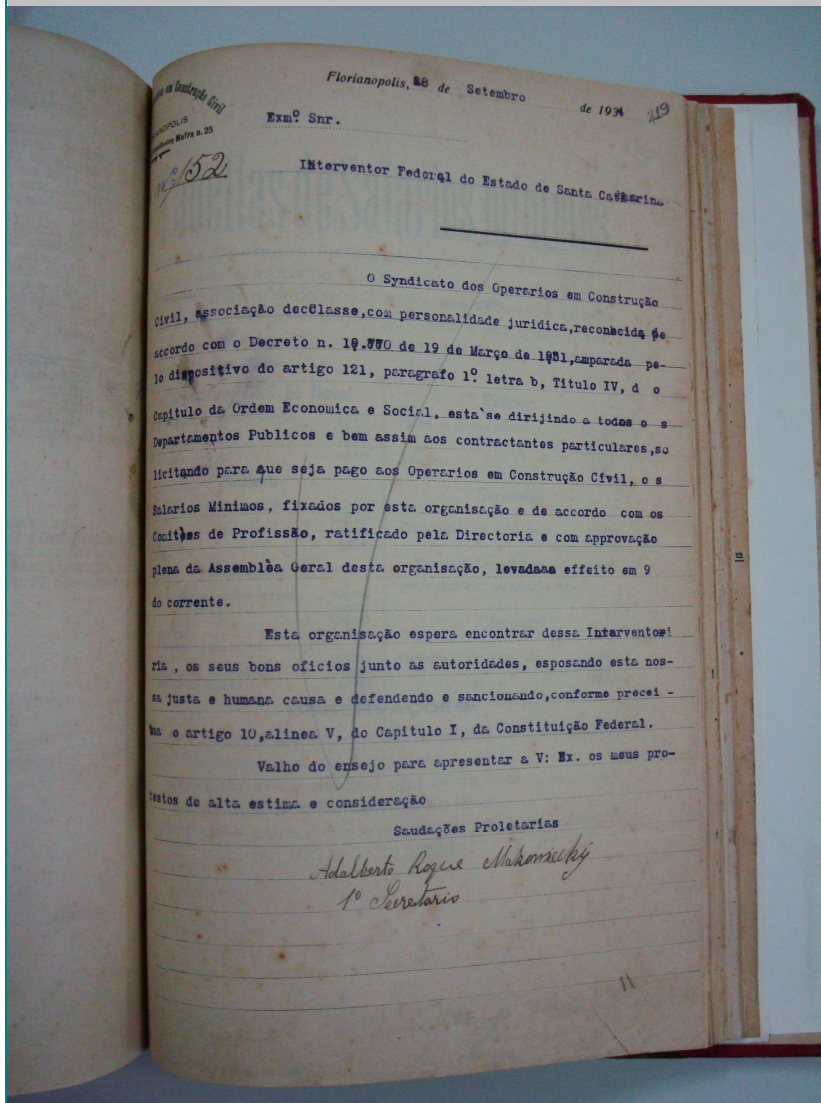 em Construção Civil
Mafra n. 25
Florianopolis, 28 de Setembro de 1934
219
Exmº. Snr.
Nº 152
Interventor Federal do Estado de Santa Catharina
O Syndicato dos Operarios em Construção
Civil, associação declasse,com personalidade juridica,reconhecida de
accordo com o Decreto n. 19.770 de 19 de Março de 1931,amparada pe-
lo dispositivo do artigo 121, paragrafo 1º. letra b, Titulo IV, d o
Capitulo da Ordem Economica e Social, esta'se dirijindo a todos o s
Departamentos Publicos e bem assim aos contractantes particulares,so
licitando para que seja pago aos Operarios em Construção Civil, o s
Salarios Minimos, fixados por esta organisação e de accordo com os
Comitèes de Profissão, ratificado pela Directoria e com approvação
plena da Assemblèa Geral desta organisação, levadaaa effeito em 9
do corrente.
Esta organisação espera encontrar dessa Interventori
ria , os seus bons oficios junto as autoridades, esposando esta nos-
sa justa e humana causa e defendendo e sancionando,conforme precei -
tua o artigo 10,alinea V, do Capitulo I, da Constituição Federal.
Valho do ensejo para apresentar a V: Ex. os meus pro-
testos de alta estima e consideração
Saudações Proletarias
Adalberto Roque Makowiecky
1º Secretario